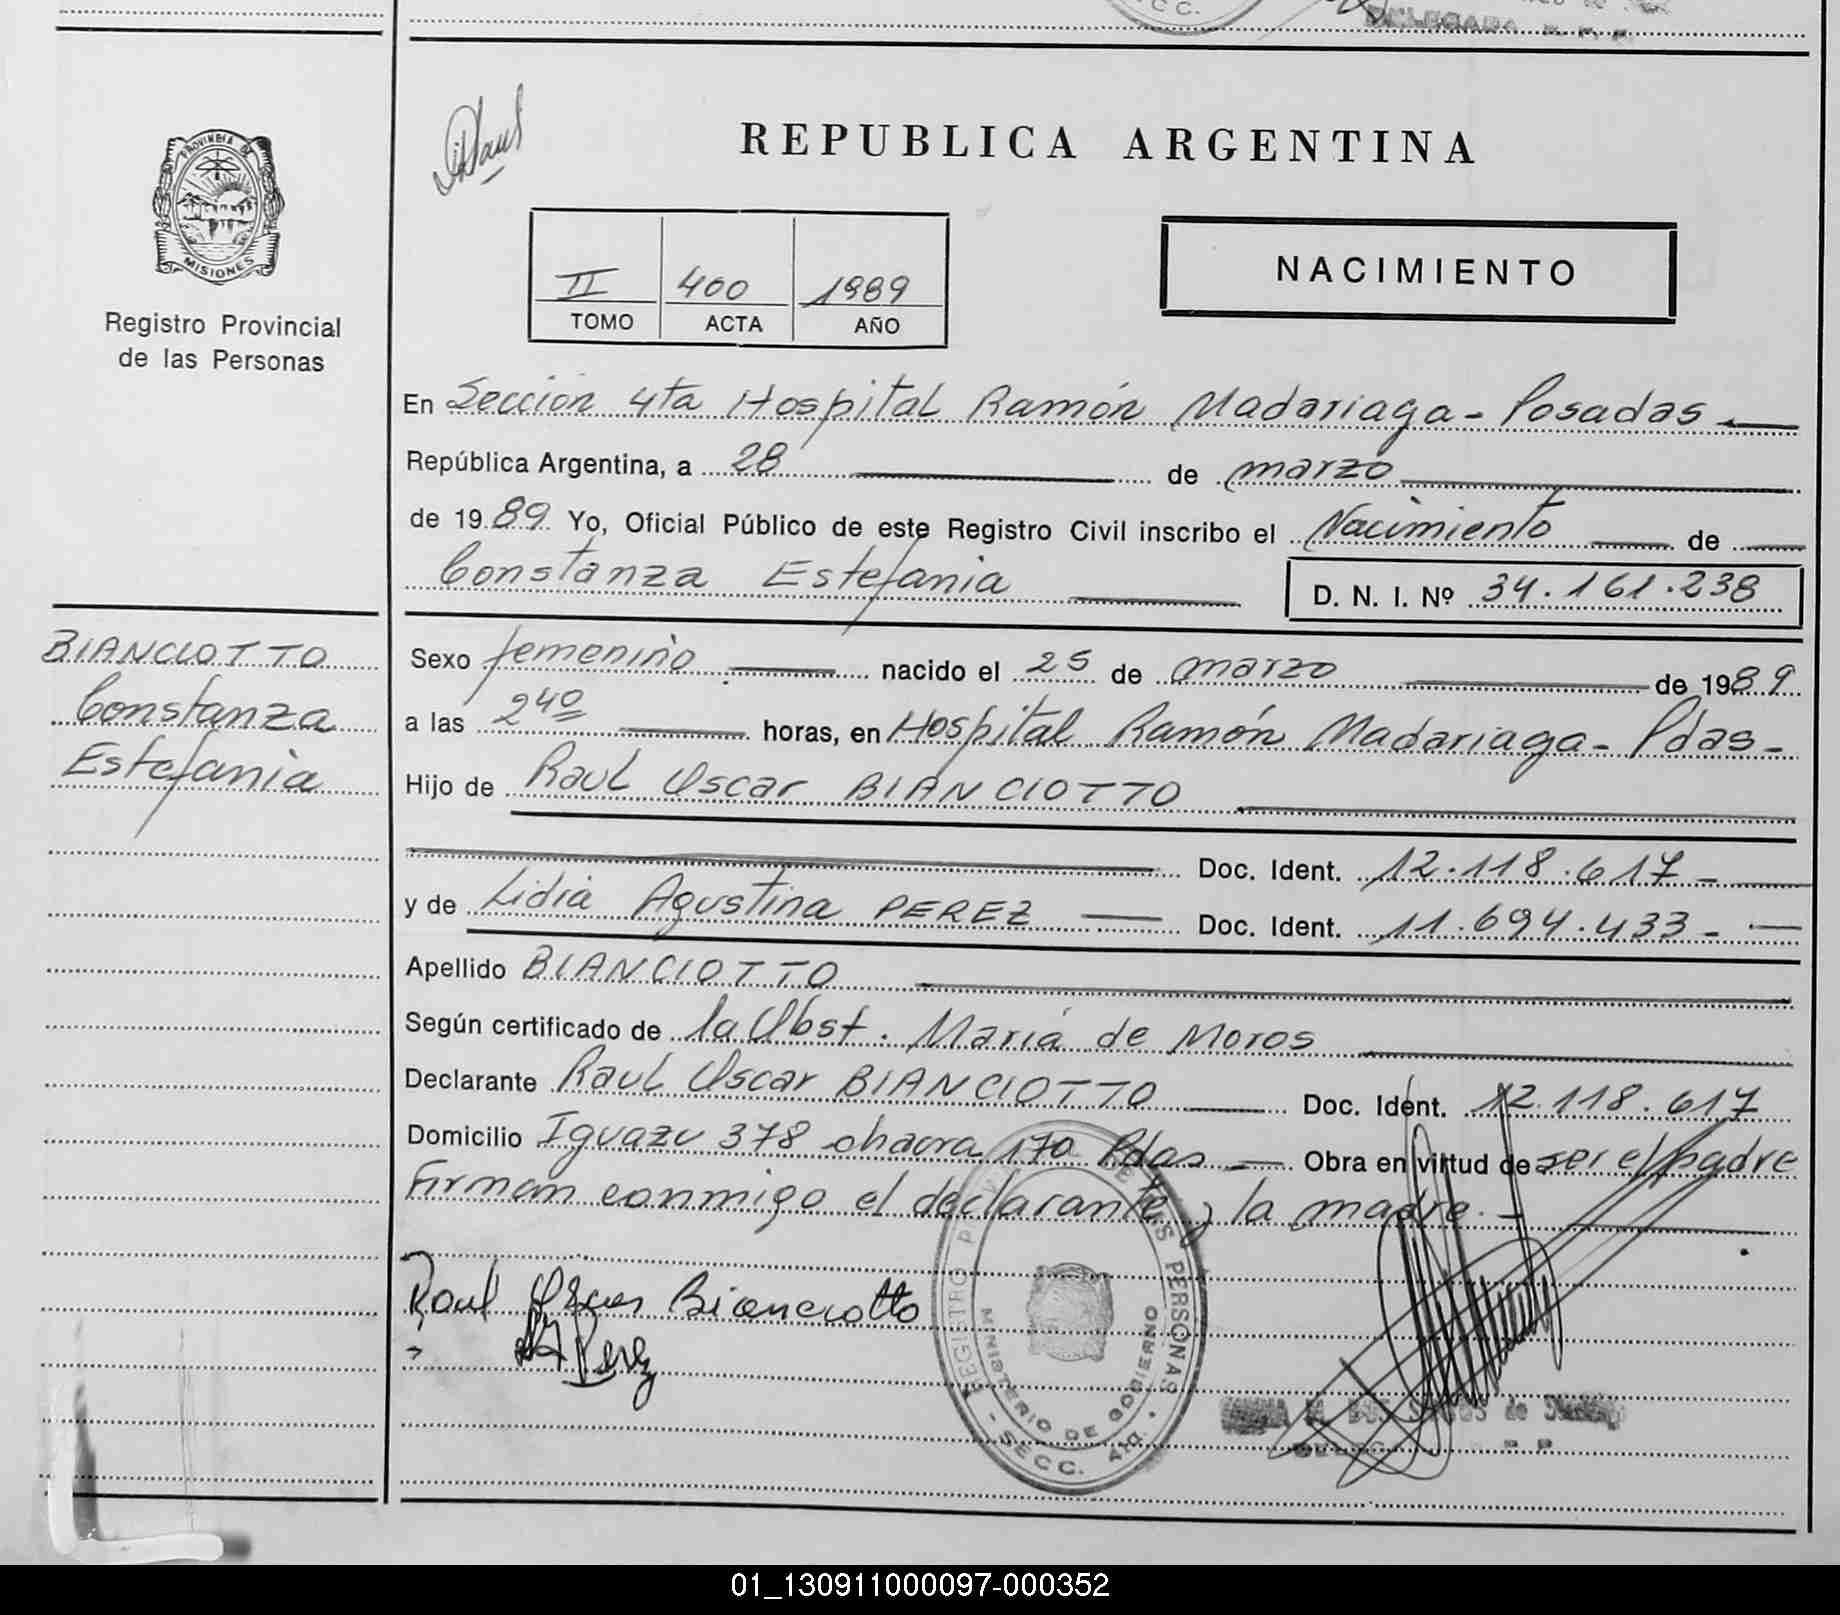 REPUBLICA ARGENTINA
PROVINCIA DE
MISIONES
Registro Provincial
de las Personas
II 400 1989
TOMO ACTA AÑO
NACIMIENTO
En Sección 4ta Hospital Ramón Madariaga - Posadas
República Argentina, a 28 de marzo
de 1989 Yo, Oficial Público de este Registro Civil inscribo el Nacimiento de
Constanza Estefania D. N. I. Nº 34.161.238
BIANCIOTTO
Constanza
Estefania
Sexo femenino nacido el 25 de marzo de 1989
a las 240 horas, en Hospital Ramón Madariaga - Pdas -
Hijo de Raul Oscar BIANCIOTTO
Doc. Ident. 12.118.617 -
y de Lidia Agustina PEREZ Doc. Ident. 11.694.433 -
Apellido BIANCIOTTO
Según certificado de la Obst. María de Moros
Declarante Raul Oscar BIANCIOTTO Doc. Ident. 12.118.617
Domicilio Iguazu 378 chacra 170 Pdas - Obra en virtud de ser el padre
Firman conmigo el declarante y la madre. -
Raul Oscar Bianciotto
Perez
REGISTRO PERSONAS
MINISTERIO DE GOBIERNO
SECC. 4ta.
01_130911000097-000352